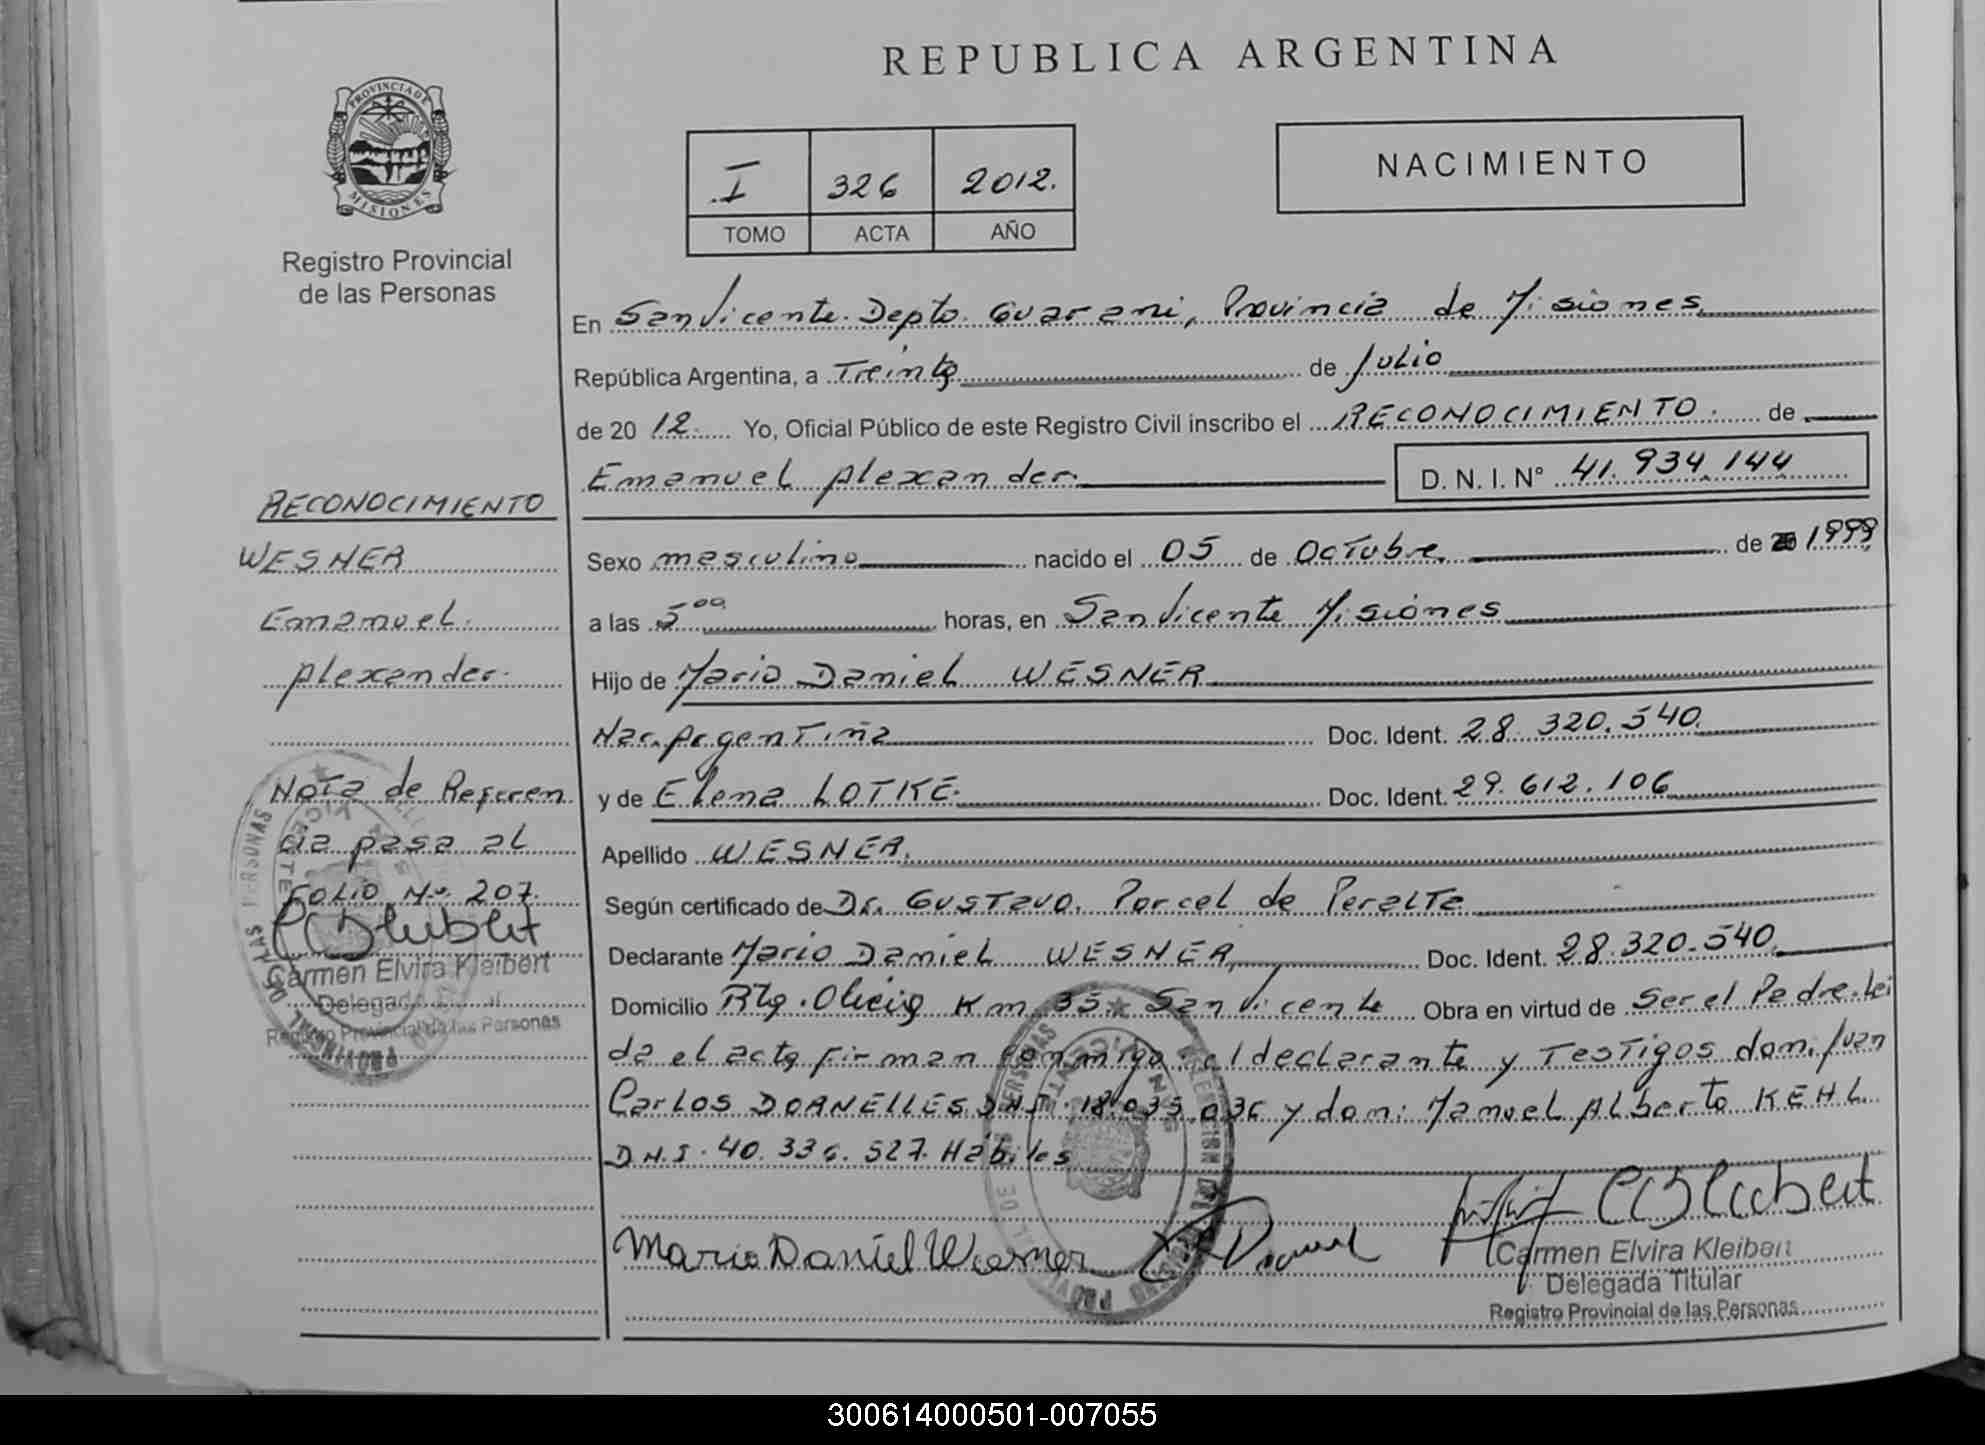 REPUBLICA ARGENTINA
PROVINCIA DE
MISIONES
Registro Provincial
de las Personas
I 326 2012.
TOMO ACTA AÑO
NACIMIENTO
En San Vicente. Depto. Guarani, Provincia de Misiones
República Argentina, a Treinta de Julio
de 2012. Yo, Oficial Público de este Registro Civil inscribo el RECONOCIMIENTO. de
Emanuel Alexander. D. N. I. N° 41.934.144
Sexo masculino nacido el 05 de Octubre. de 1999
a las 5 00 horas, en San Vicente Misiones
Hijo de Mario Daniel WESNER
Nac. Argentina Doc. Ident. 28.320.540.
y de Elena LOTKE. Doc. Ident. 29.612.106
Apellido WESNER.
Según certificado de Dr. GUSTAVO. Porcel de Peralta
Declarante Mario Daniel WESNER, Doc. Ident. 28.320.540.
Domicilio Km 35. San Vicente Obra en virtud de Ser el Padre. Lei
da el acta firman conmigo el declarante y Testigos don: Juan
Carlos DORNELLES D.N.I. 18.035.036 y don: Manuel Alberto KEHL
D.N.I. 40.336.527. Habiles
Mario Daniel Wesner
Carmen Elvira Kleibert
Delegada Titular
Registro Provincial de las Personas
RECONOCIMIENTO
WESNER
Emanuel.
Alexander.
Nota de Referen
cia pasa al
Folio No. 207.
Carmen Elvira Kleibert
Delegada
Registro Provincial de las Personas
300614000501-007055